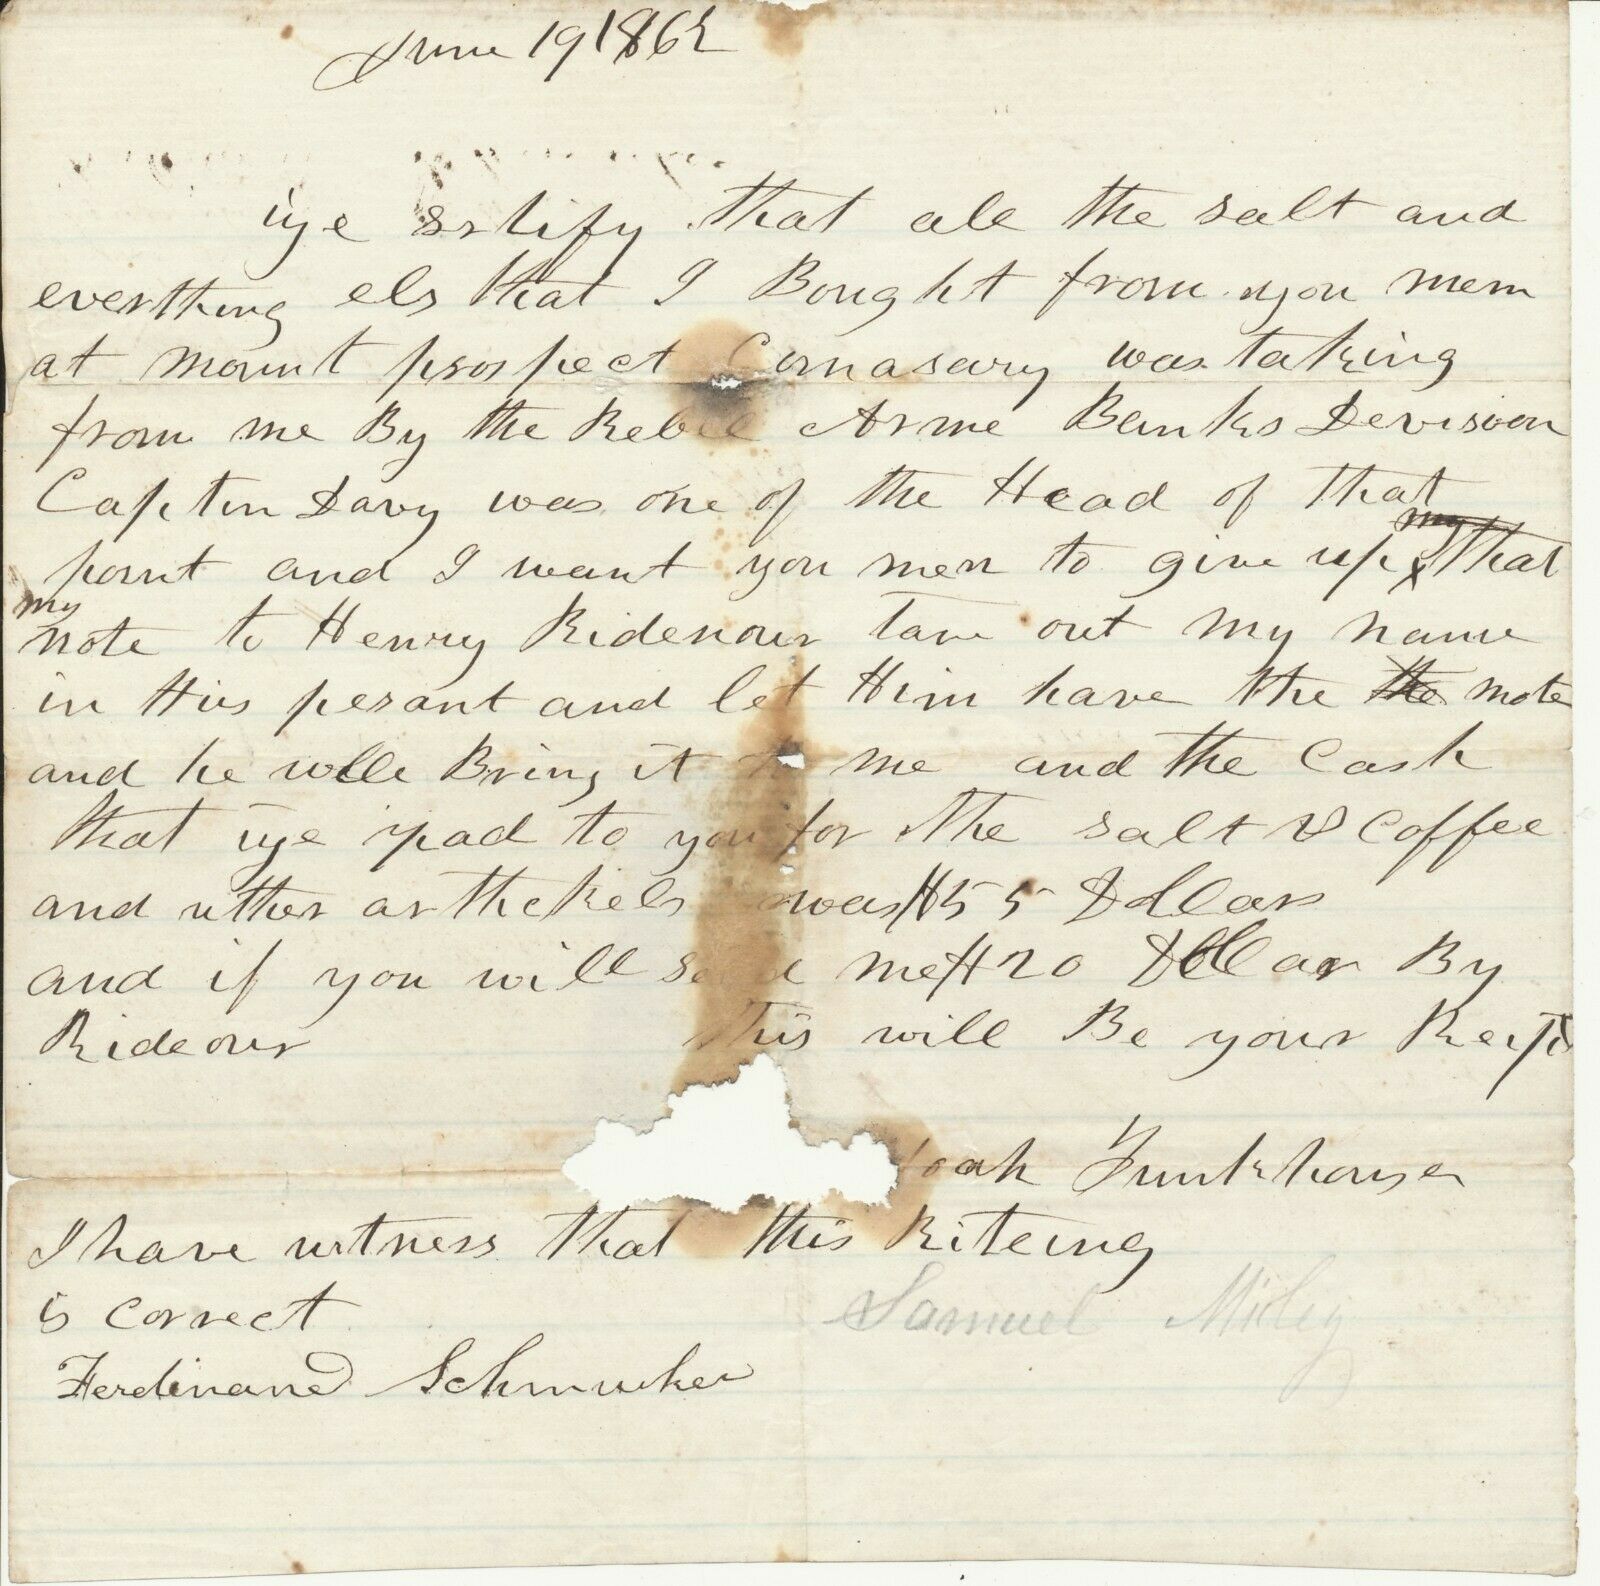 June 19 1862
iye srtify that all the salt and
everthing els that I Bought from you mem
at mount prospect Comasary was taking
from me By the Rebel Arme Banks Devision
Captin Davy was one of the Head of that
point and I want you men to give up my that
my
note to Henry Ridenour Tare out my name
in His pesant and let Him have the the note
and he wille Bring it to me and the Cash
that iye pad to you for the salt & Coffee
and uther arthekels was #55 Dollars
and if you will send me #20 Dollar By
Rideour This will Be your Reipt
oah Funkhouser
I have witness that this Riteing
is correct
Samuel
Ferdinand Schmucker